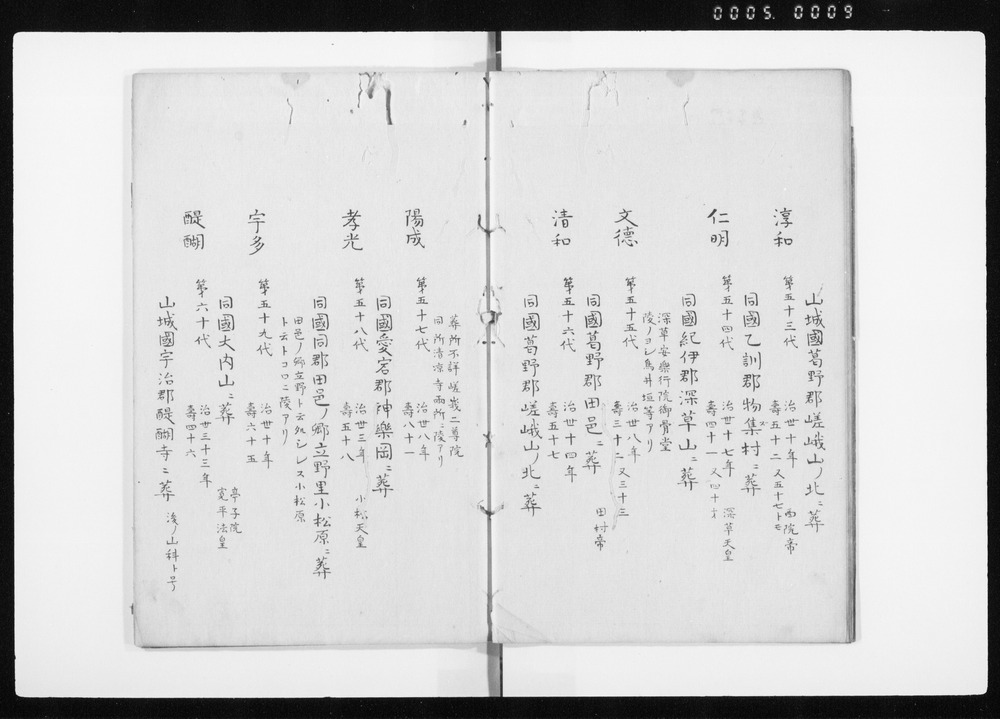 0005. 0009
山城國葛野郡嵯峨山ノ北ニ葬
淳和
第五十三代
治世十年 西院帝
壽五十二 又五十七トモ
同國乙訓郡物集村ニ葬
仁明
第五十四代
治世十七年 深草天皇
壽四十一 又四十才
同國紀伊郡深草山ニ葬
深草安樂行院御骨堂
陵ノヨシ鳥井垣等アリ
文德
第五十五代
治世八年
壽三十二 又三十三
同國葛野郡田邑ニ葬 田村帝
清和
第五十六代
治世十四年
壽五十七
同國葛野郡嵯峨山ノ北ニ葬
葬所不詳嵯峨二尊院
同所清凉寺両所ニ陵アリ
陽成
第五十七代
治世八年
壽八十一
同國愛宕郡神樂岡ニ葬
孝光
第五十八代
治世三年 小松天皇
壽五十八
同國同郡田邑ノ郷立野里小松原ニ葬
田邑ノ郷立野ト云処シレス小松原
ト云トコロニ陵アリ
宇多
第五十九代
治世十年
壽六十五
同國大内山ニ葬 亭子院
寛平法皇
醍醐
第六十代
治世三十三年
壽四十六
山城國宇治郡醍醐寺ニ葬 後ノ山科ト号